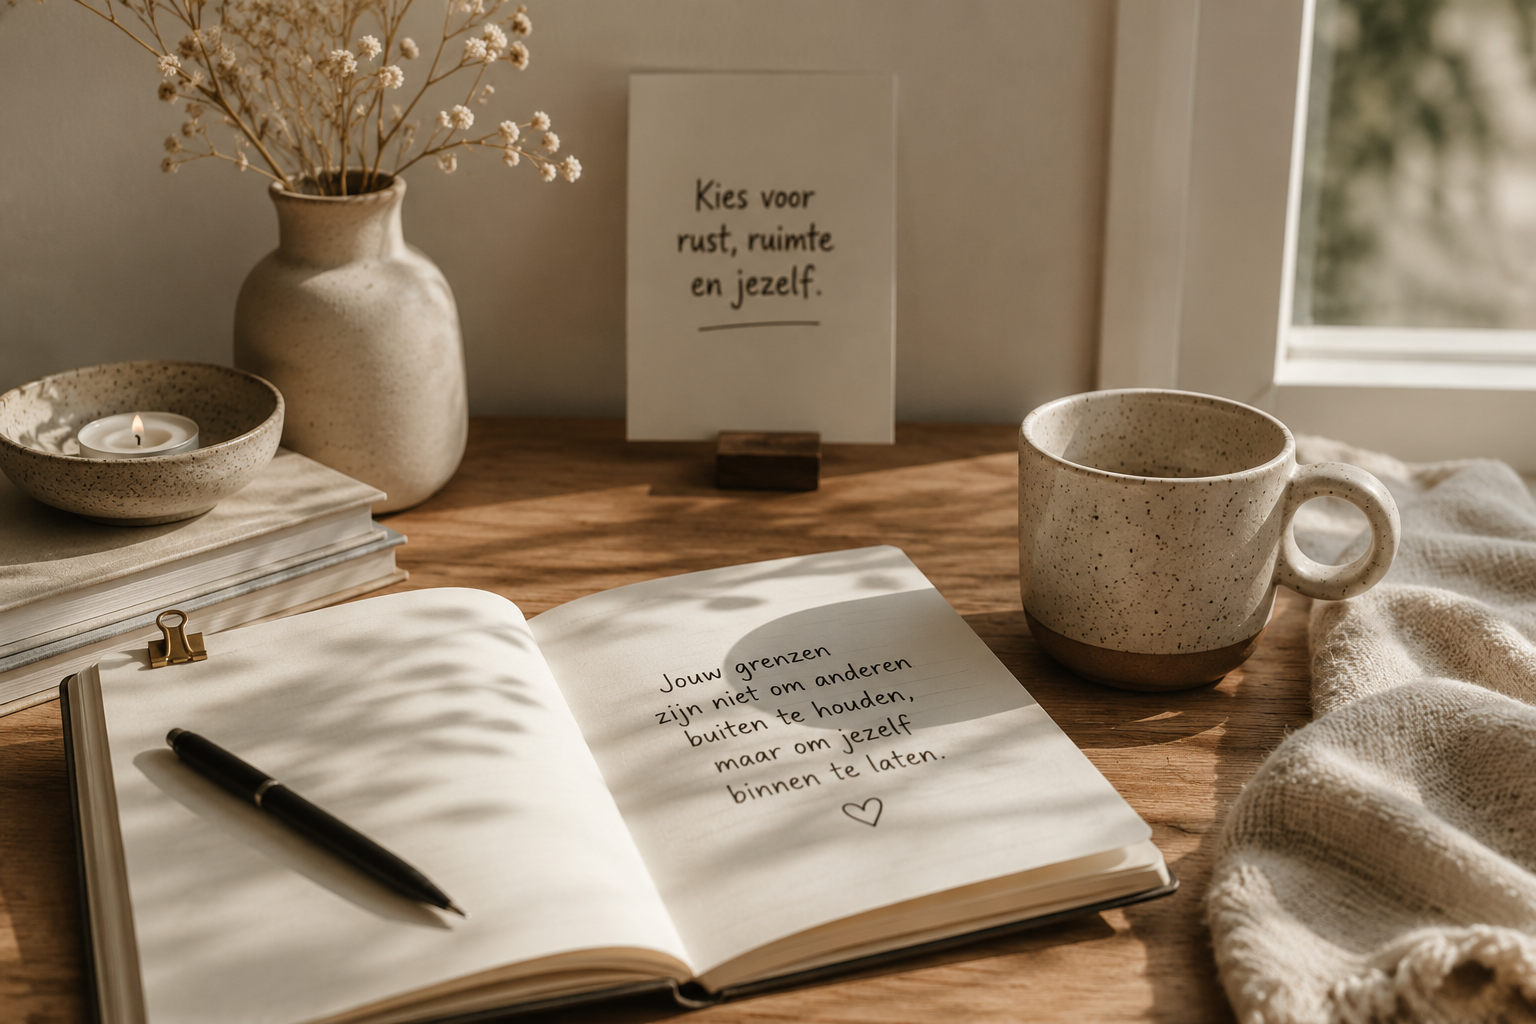 Kies voor
rust, ruimte
en jezelf.
Jouw grenzen
zijn niet om anderen
buiten te houden,
maar om jezelf
binnen te laten.